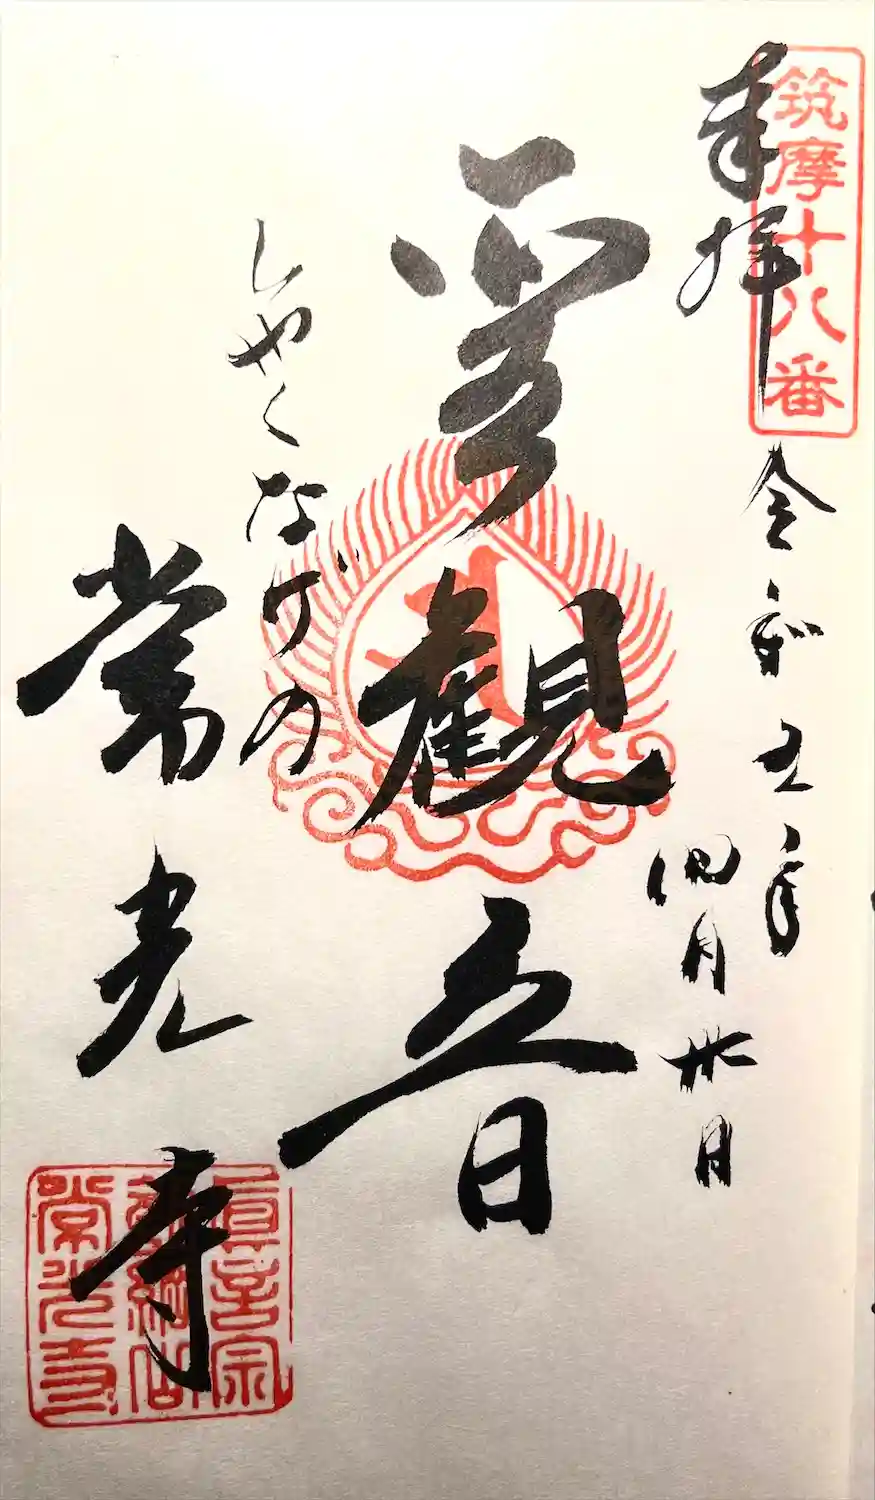 筑摩十八番
奉拝
令和五年
四月卅日
観音
しやくなげの
常光寺
眞言宗
常光寺